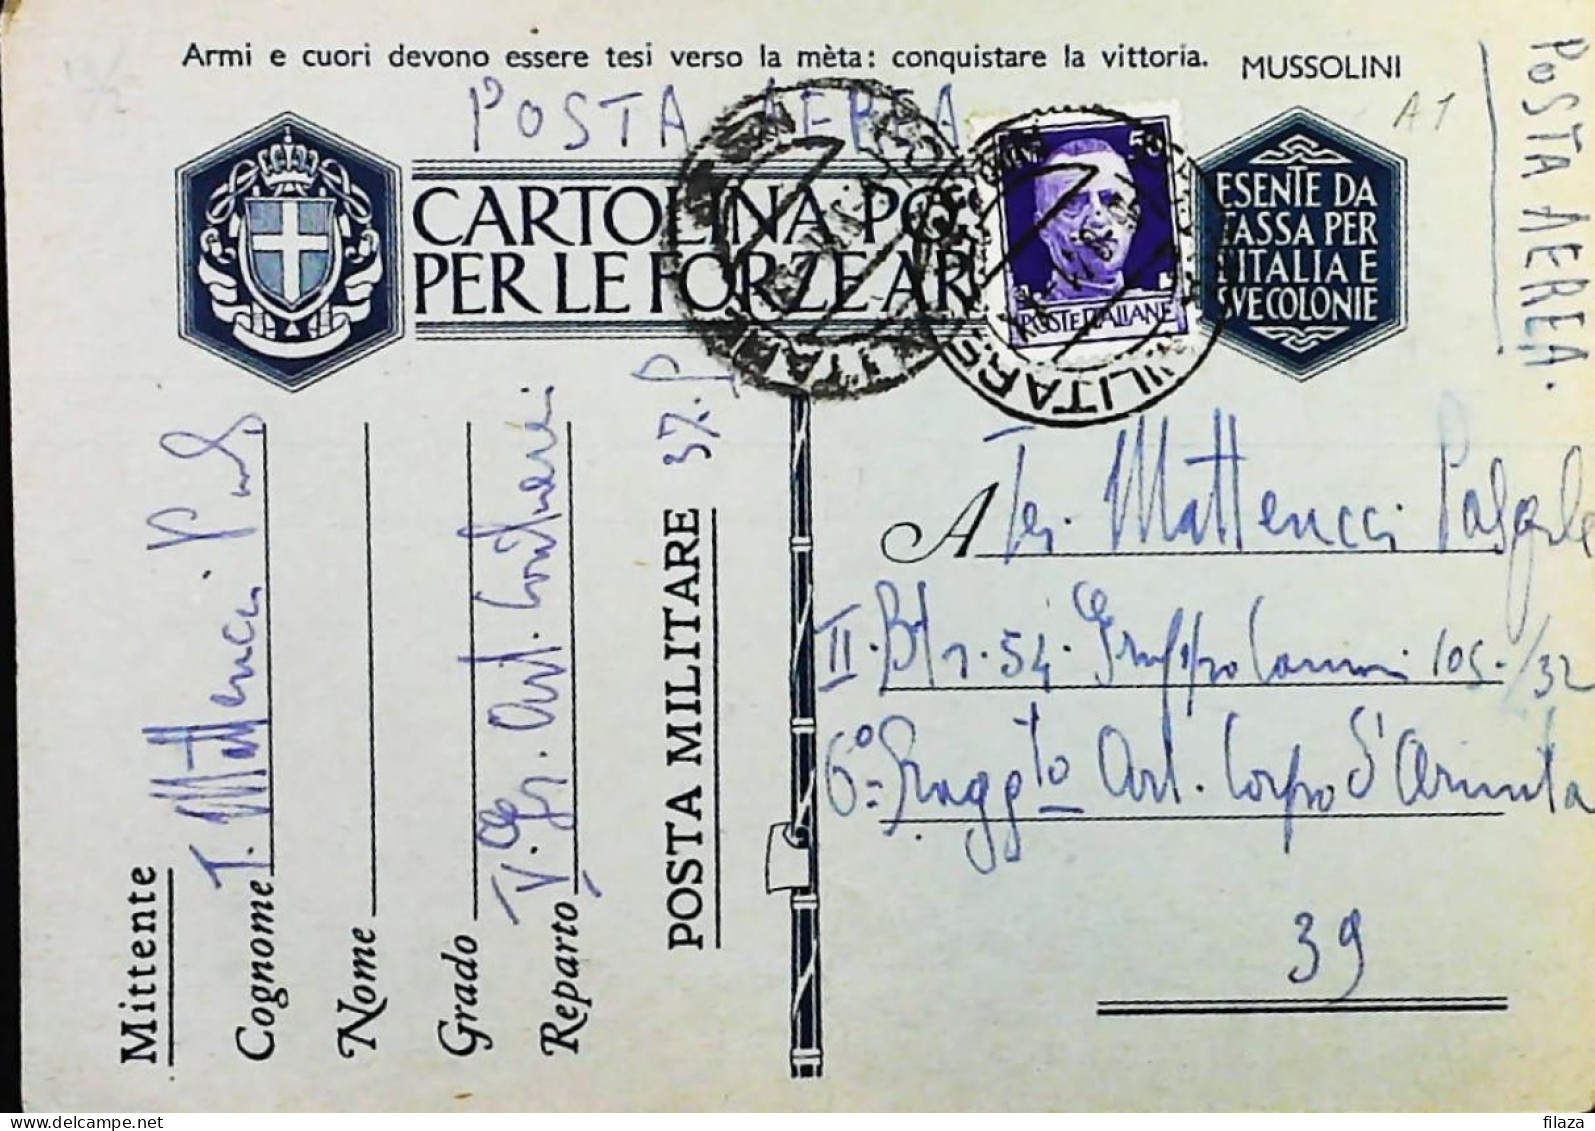 Armi e cuori devono essere tesi verso la mèta: conquistare la vittoria. MUSSOLINI
POSTA AEREA
A1
POSTA AEREA.
CARTOLINA PO
PER LE FORZE AR
50
POSTE ITALIANE
ESENTE DA
TASSA PER
L'ITALIA E
SUE COLONIE
Mittente
Cognome T. Matteucci
Nome
Grado
Reparto
POSTA MILITARE 37. P
A Ten. Matteucci Pasquale
II. Btr. 54. Gruppo Cannoni 105/32
6º Raggto Art. Corpo d'Armata
39
filaza